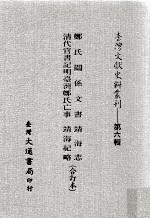 臺灣文獻史料叢刊——第六輯
鄭氏關係文書 靖海志
清代官書記明臺灣鄭氏亡事 靖海紀略(合訂本)
臺灣大通書局印行